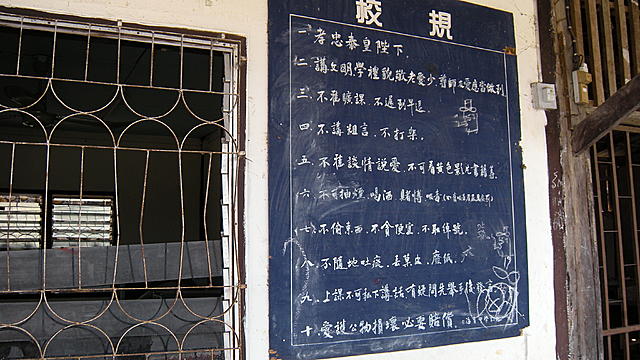 校規
一.孝忠泰皇陛下.
仁.講文明學禮貌敬老愛少.尊師友愛應當做到
三.不准曠課.不遲到早退.
四.不講粗言.不打架.
五.不准談情說愛.不可看黃色影光書籍等.
六.不可抽煙.喝酒.賭博.吸毒
七.不偷東西.不貪便宜.不取綽號.
八.不隨地吐痰.丟菓皮.廢紙.
九.上課不可私下講話.有疑問先舉手後發言
十.愛護公物損壞必要賠償.